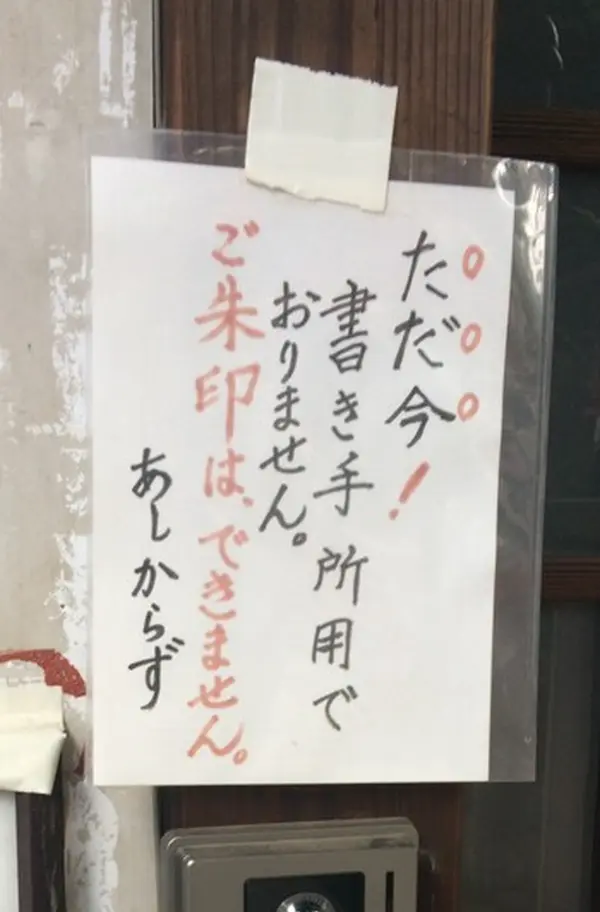 ただ今！
書き手所用で
おりません。
ご朱印は、できません。
あしからず